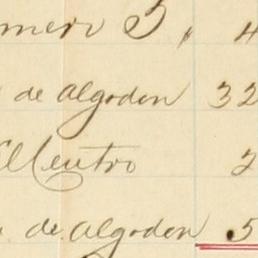 mero 5, 4
de algodon 32
El Centro 2
de algodon 5